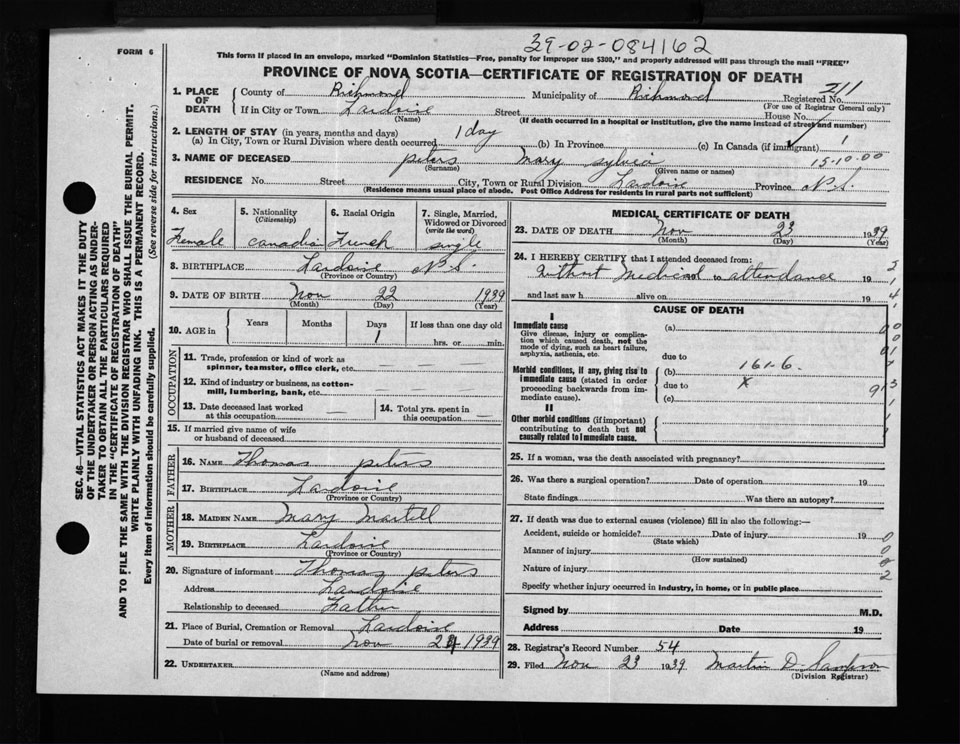 39-02-084162
FORM 6
This form if placed in an envelope, marked "Dominion Statistics—Free, penalty for improper use $300," and properly addressed will pass through the mail "FREE"
PROVINCE OF NOVA SCOTIA—CERTIFICATE OF REGISTRATION OF DEATH
SEC. 46—VITAL STATISTICS ACT MAKES IT THE DUTY
OF THE UNDERTAKER OR PERSON ACTING AS UNDER-
TAKER TO OBTAIN ALL THE PARTICULARS REQUIRED
IN THE "CERTIFICATE OF REGISTRATION OF DEATH"
AND TO FILE THE SAME WITH THE DIVISION REGISTRAR WHO SHALL ISSUE THE BURIAL PERMIT.
WRITE PLAINLY WITH UNFADING INK. THIS IS A PERMANENT RECORD.
Every item of information should be carefully supplied. (See reverse side for instructions.)
1. PLACE OF DEATH
County of Richmond Municipality of Richmond Registered No. 711
(For use of Registrar General only)
If in City or Town Lardoise Street House No.
(Name) (If death occurred in a hospital or institution, give the name instead of street and number)
2. LENGTH OF STAY (in years, months and days)
(a) In City, Town or Rural Division where death occurred 1 day (b) In Province (c) In Canada (if immigrant) 1
15-10-00
3. NAME OF DECEASED peters Mary Sylvia
(Surname) (Given name or names)
RESIDENCE No. Street City, Town or Rural Division Lardoise Province N.S.
(Residence means usual place of abode. Post Office Address for residents in rural parts not sufficient)
4. Sex Female
5. Nationality (Citizenship) Canadia
6. Racial Origin French
7. Single, Married, Widowed or Divorced (write the word) single
8. BIRTHPLACE Lardoise N.S.
(Province or Country)
9. DATE OF BIRTH Nov 22 1939
(Month) (Day) (Year)
10. AGE in Years Months Days If less than one day old
1 hrs. or min.
OCCUPATION
11. Trade, profession or kind of work as
spinner, teamster, office clerk, etc. — — —
12. Kind of industry or business, as cotton-
mill, lumbering, bank, etc. — — —
13. Date deceased last worked
at this occupation —
14. Total yrs. spent in
this occupation —
15. If married give name of wife
or husband of deceased
FATHER
16. NAME Thomas peters
17. BIRTHPLACE Lardoise
(Province or Country)
MOTHER
18. MAIDEN NAME Mary Martell
19. BIRTHPLACE Lardoise
(Province or Country)
20. Signature of informant Thomas peters
Address Lardoise
Relationship to deceased Father
21. Place of Burial, Cremation or Removal Lardoise
Date of burial or removal Nov 24 1939
22. UNDERTAKER
(Name and address)
MEDICAL CERTIFICATE OF DEATH
23. DATE OF DEATH Nov 23 1939
(Month) (Day) (Year)
24. I HEREBY CERTIFY that I attended deceased from:
Without Medical to attendance 19
and last saw h alive on 19
CAUSE OF DEATH
I
Immediate cause
Give disease, injury or complica-
tion which caused death, not the
mode of dying, such as heart failure,
asphyxia, asthenia, etc.
(a)
due to
Morbid conditions, if any, giving rise to
immediate cause (stated in order
proceeding backwards from im-
mediate cause).
(b) 161-6.
due to X
(c)
II
Other morbid conditions (if important)
contributing to death but not
causally related to immediate cause.
25. If a woman, was the death associated with pregnancy?
26. Was there a surgical operation? Date of operation 19
State findings Was there an autopsy?
27. If death was due to external causes (violence) fill in also the following:—
Accident, suicide or homicide? Date of injury 19
(State which)
Manner of injury
(How sustained)
Nature of injury
Specify whether injury occurred in industry, in home, or in public place
Signed by M.D.
Address Date 19
28. Registrar's Record Number 54
29. Filed Nov 23 1939 Martin D. Sampson
(Division Registrar)